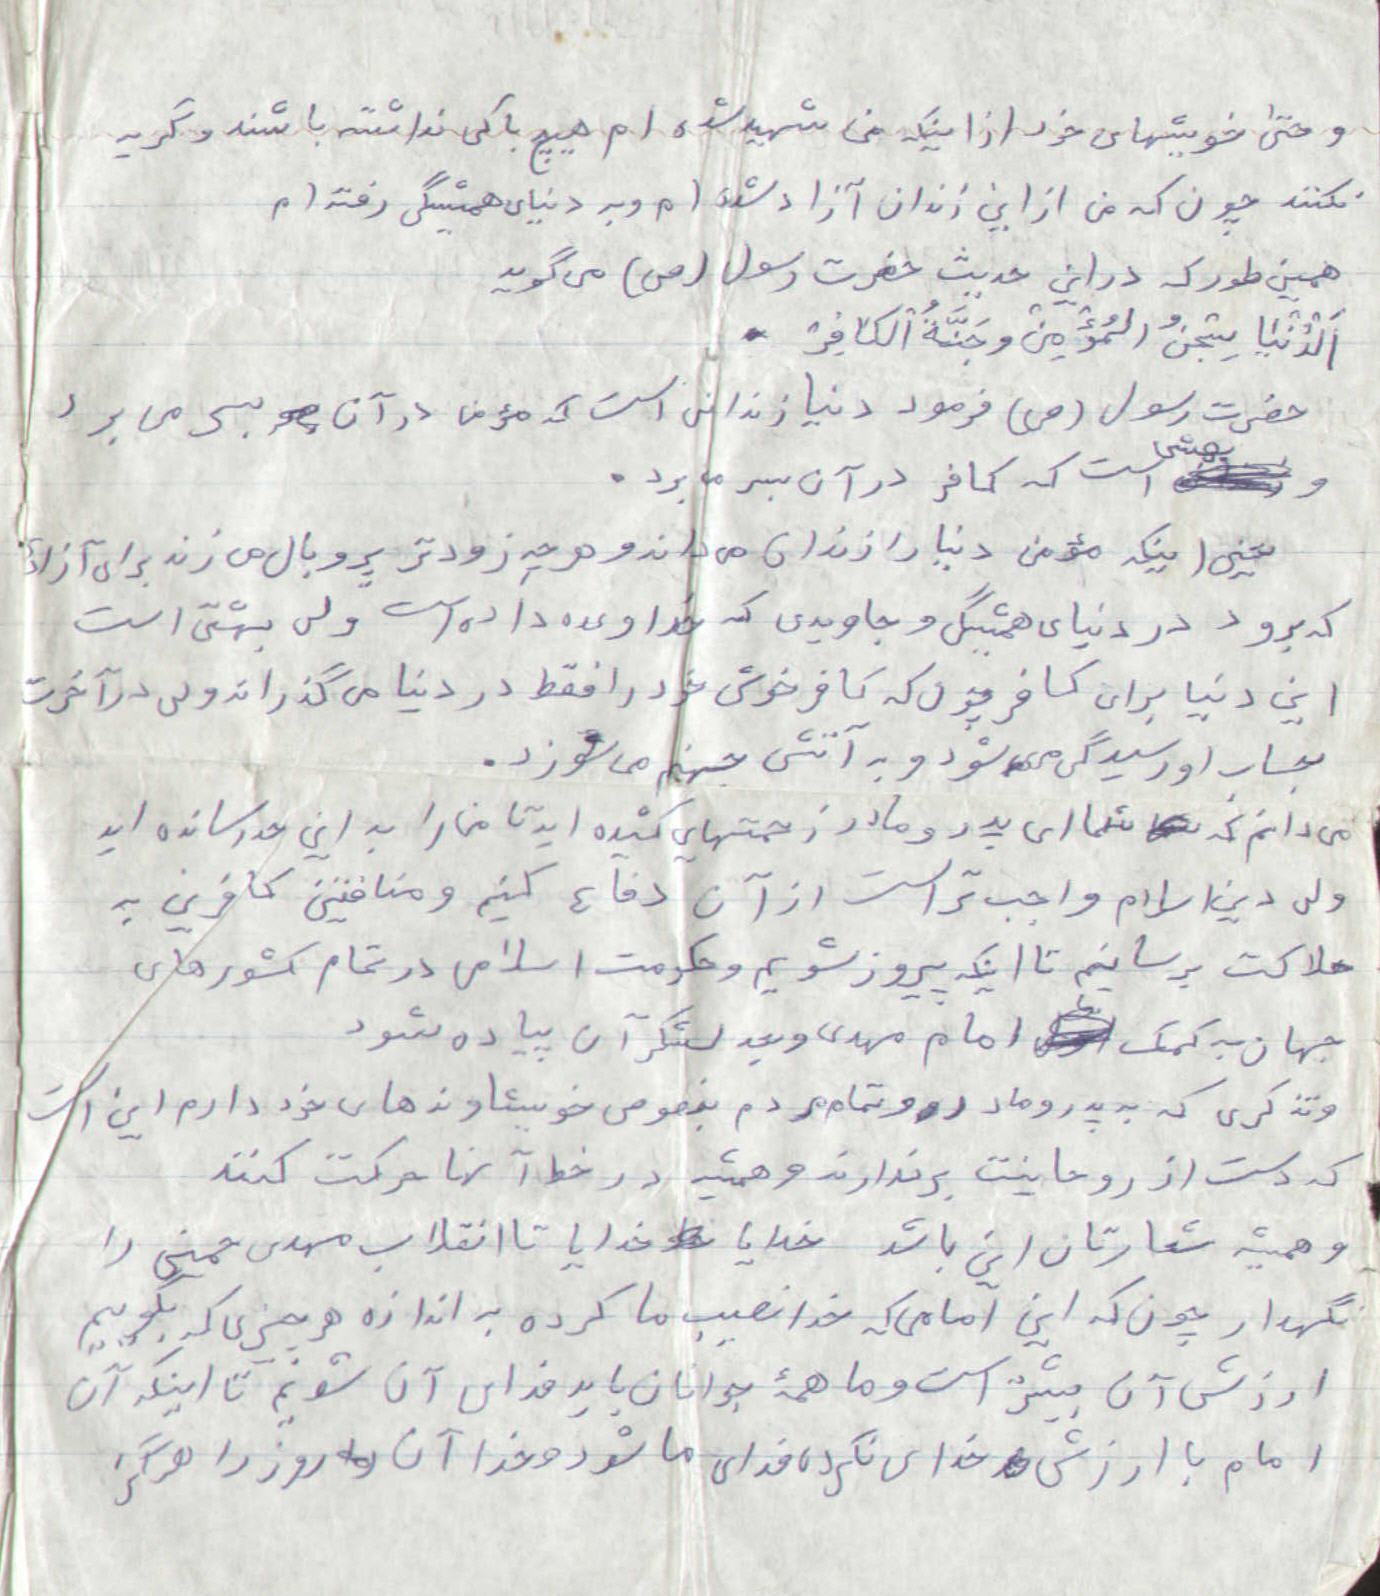 و حتی خویشهای خود از اینکه من شهید شده ام هیچ باکی نداشته باشند و گریه
نکنند چون که من از این زندان آزاد شده ام و به دنیای همیشگی رفته ام
همین طور که در این حدیث حضرت رسول (ص) می گوید
اَلدُّنْیٰا سِجْنُ الْمُؤْمِنْ وَجَنَّةُ الْکافِرْ
حضرت رسول (ص) فرمود دنیا زندانی است که مؤمن در آن بسر می برد
و بهشتی است که کافر در آن بسر می برد .
یعنی اینکه مؤمن دنیا را زندان می داند و هر چه زودتر پر و بال می زند برای آزادی
که برود در دنیای همیشگی و جاویدی که خدا وعده داده است ولی بهشتی است
این دنیا برای کافر چون که کافر خوشی خود را فقط در دنیا می گذراند ولی در آخرت
بحساب او رسیدگی می شود و به آتش جهنم می سوزد .
می دانم که شما ای پدر و مادر زحمتهای کشیده اید تا من را به این حد رسانده اید
ولی دین اسلام واجب تر است از آن دفاع کنیم و منافقین کافرین به
هلاکت برسانیم تا اینکه پیروز شویم و حکومت اسلامی در تمام کشورهای
جهان به کمک امام مهدی و لشگر آن پیاده شود
و تذکری که به پدر و مادر و تمام مردم بخصوص خویشاوندهای خود دارم این است
که دست از روحانیت برندارند و همیشه در خط آنها حرکت کنند
و همیشه شعارتان این باشد خدایا خدایا تا انقلاب مهدی خمینی را
نگهدار چون که این امامی که خدا نصیب ما کرده به اندازه هر چیزی که بگوییم
ارزشی آن بیشتر است و ما همهٔ جوانان باید فدای آن شویم تا اینکه آن
امام با ارزشی خدای نکرده فدای ما شود و خدا آن روز را هرگز